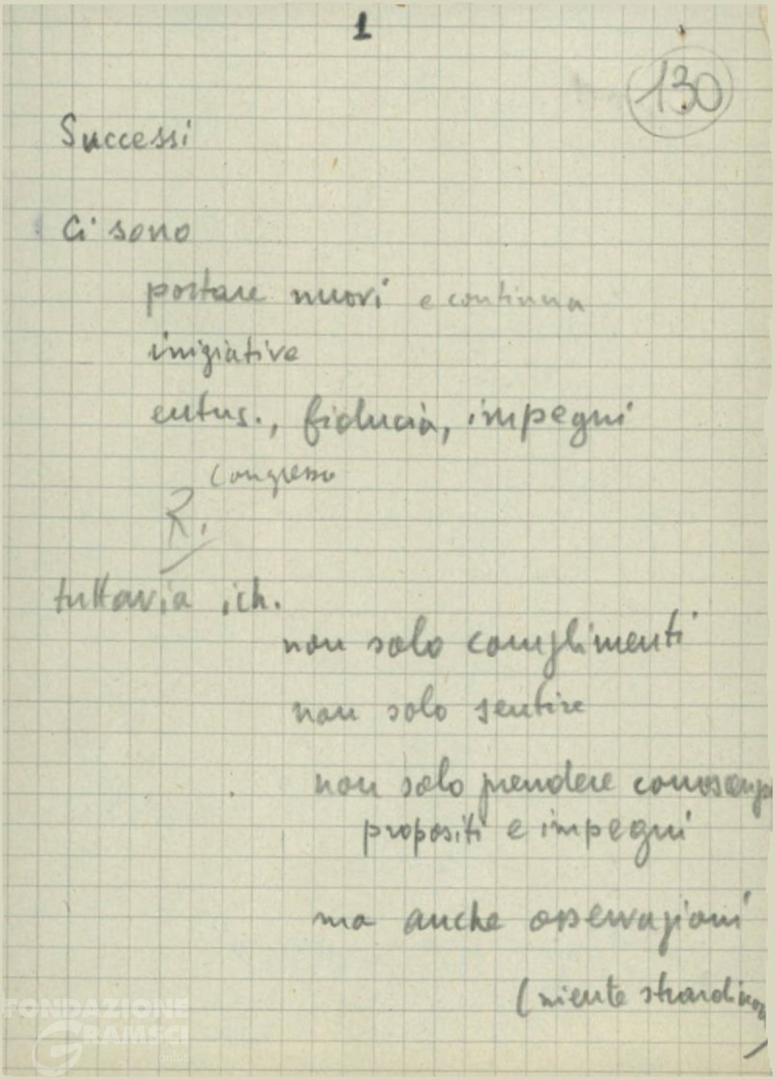 1
130
Successi
Ci sono
portare nuovi e continua
iniziative
entus., fiducia, impegni
Congresso
R.
tuttavia ich.
non solo complimenti
non solo sentire
non solo prendere conoscenza
propositi e impegni
ma anche osservazioni
(niente straordinar
FONDAZIONE
GRAMSCI
onlus